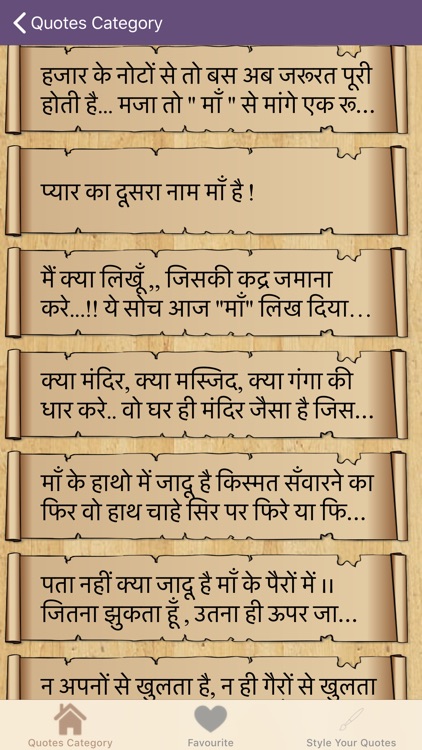 Quotes Category
हजार के नोटों से तो बस अब जरूरत पूरी
होती है... मजा तो " माँ " से मांगे एक रू...
प्यार का दूसरा नाम माँ है !
मैं क्या लिखूँ ,, जिसकी कद्र जमाना
करे...!! ये सोच आज "माँ" लिख दिया...
क्या मंदिर, क्या मस्जिद, क्या गंगा की
धार करे.. वो घर ही मंदिर जैसा है जिस...
माँ के हाथो में जादू है किस्मत सँवारने का
फिर वो हाथ चाहे सिर पर फिरे या फि...
पता नहीं क्या जादू है माँ के पैरों में ।।
जितना झुकता हूँ , उतना ही ऊपर जा...
न अपनों से खुलता है, न ही गैरों से खुलता
Quotes Category
Favourite
Style Your Quotes